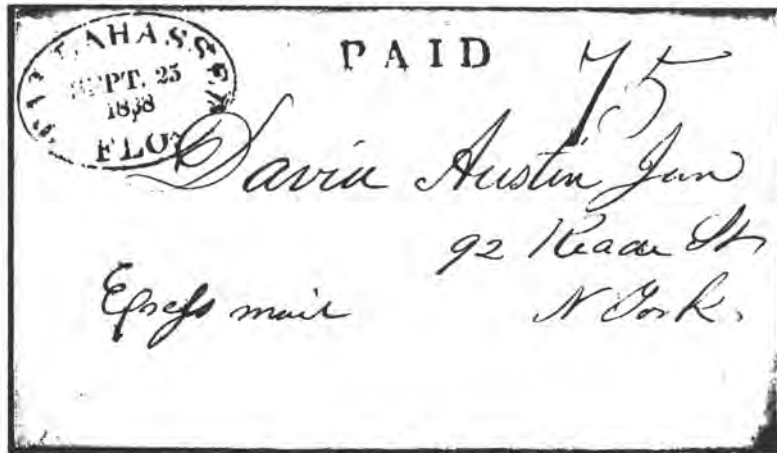 TALLAHASSEE
SEPT. 25
1838
FLOA
PAID
75
David Austin Jun
92 Reade St
N York.
Express mail